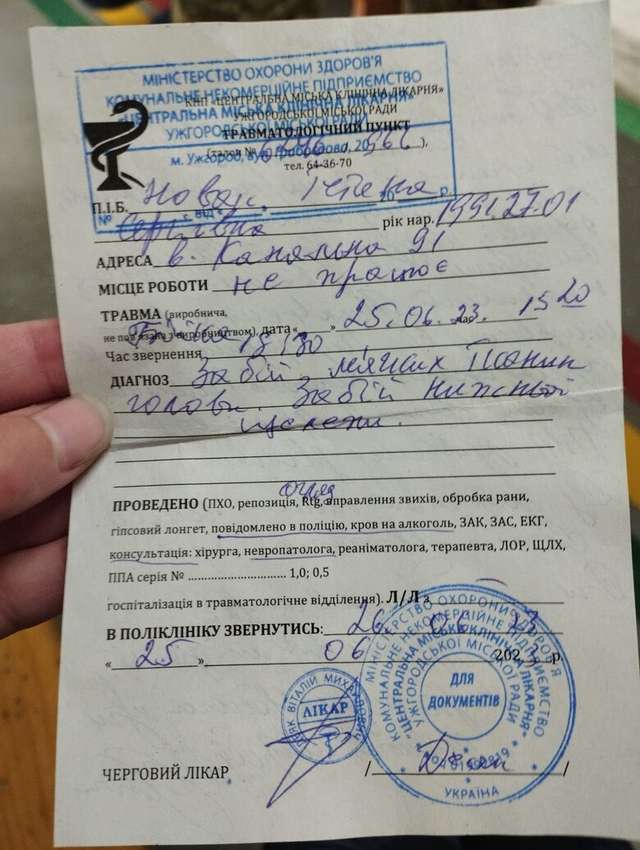 МІНІСТЕРСТВО ОХОРОНИ ЗДОРОВ'Я
КОМУНАЛЬНЕ НЕКОМЕРЦІЙНЕ ПІДПРИЄМСТВО
"ЦЕНТРАЛЬНА МІСЬКА КЛІНІЧНА ЛІКАРНЯ"
УЖГОРОДСЬКОЇ МІСЬКОЇ РАДИ
КНП «ЦЕНТРАЛЬНА МІСЬКА КЛІНІЧНА ЛІКАРНЯ»
УЖГОРОДСЬКОЇ МІСЬКОЇ РАДИ
ТРАВМАТОЛОГІЧНИЙ ПУНКТ
м. Ужгород, вул. Грибоєдова, 20
тел. 64-36-70
П.І.Б.
№ від р.
Сергіївна рік нар. 1991 27.01
АДРЕСА в. Канальна 91
МІСЦЕ РОБОТИ не працює
ТРАВМА (виробнича,
не пов'язана з виробництвом), дата « » 25.06.23. час 15 20
Час звернення
ДІАГНОЗ Забій м'яких тканин
голови. Забій нижньої
щелепи.
ПРОВЕДЕНО (ПХО, репозиція, Rtg, вправлення звихів, обробка рани,
огляд
гіпсовий лонгет, повідомлено в поліцію, кров на алкоголь, ЗАК, ЗАС, ЕКГ,
консультація: хірурга, невропатолога, реаніматолога, терапевта, ЛОР, ЩЛХ,
ППА серія № .............................. 1,0; 0,5
госпіталізація в травматологічне відділення). Л/Л з
В ПОЛІКЛІНІКУ ЗВЕРНУТИСЬ: 26. 06 23
« 25 » 06 2023 р.
ВІТАЛІЙ МИХАЙЛОВИЧ
ЛІКАР
МІНІСТЕРСТВО ОХОРОНИ ЗДОРОВ'Я
КОМУНАЛЬНЕ НЕКОМЕРЦІЙНЕ ПІДПРИЄМСТВО
"ЦЕНТРАЛЬНА МІСЬКА КЛІНІЧНА ЛІКАРНЯ"
УЖГОРОДСЬКОЇ МІСЬКОЇ РАДИ
ДЛЯ
ДОКУМЕНТІВ
УКРАЇНА
ЧЕРГОВИЙ ЛІКАР / /